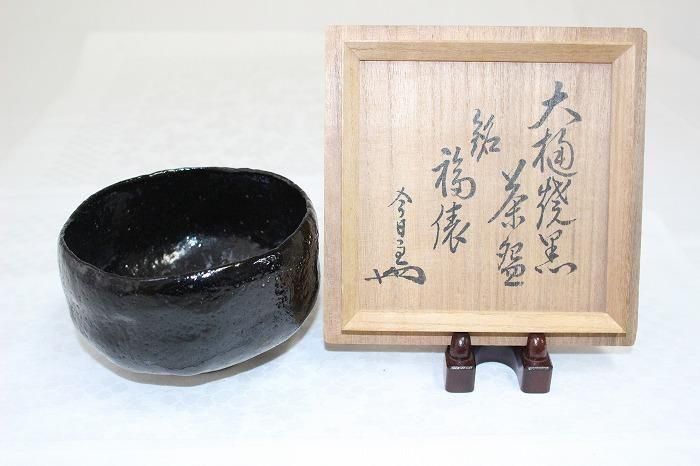 大樋焼黒
茶盌
銘
福俵
今日庵